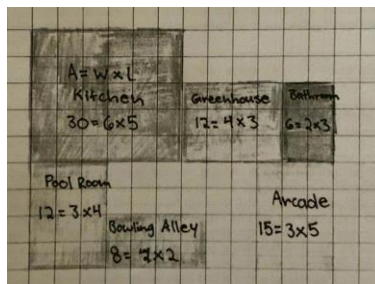 A = W x L
Kitchen
30 = 6x5
Greenhouse
12 = 4x3
Bathroom
6 = 2x3
Pool Room
12 = 3x4
Bowling Alley
8 = x2
Arcade
15 = 3x5